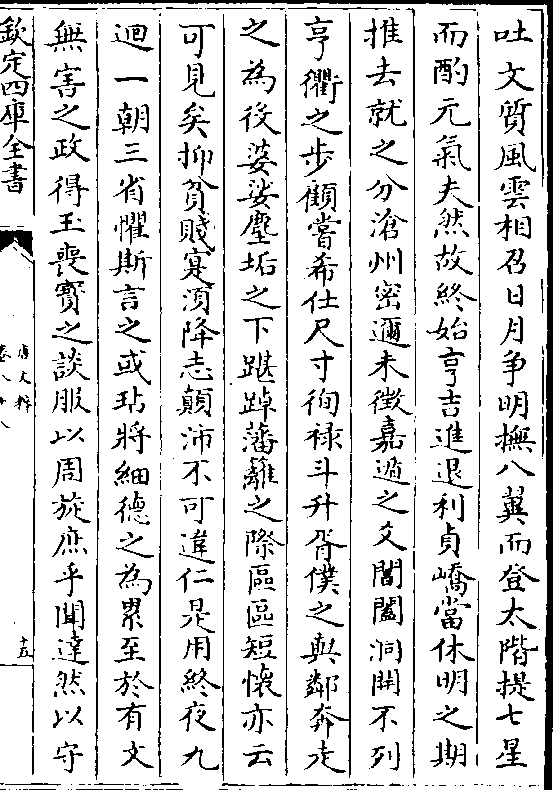 吐文質風雲相召日月争明撫八翼而登太階提七星
而酌元氣夫然故終始亨吉進退利貞嶠當休明之期
推去就之分滄州密邇未徵嘉遁之爻閶闔洞開不列
亨衢之步顧嘗希仕尺寸徇祿斗升胥僕之與鄰奔走
之為役婆娑塵垢之下踸踔藩籬之際區區短懷亦云
可見矣抑貧賤寔須降志顛沛不可違仁是用終夜九
迴一朝三省懼斯言之或玷將細德之為累至於有文
無害之政得玉喪寳之談服以周旋庶乎聞達然以守
欽定四庫全書
唐文粹
卷八十八
十五